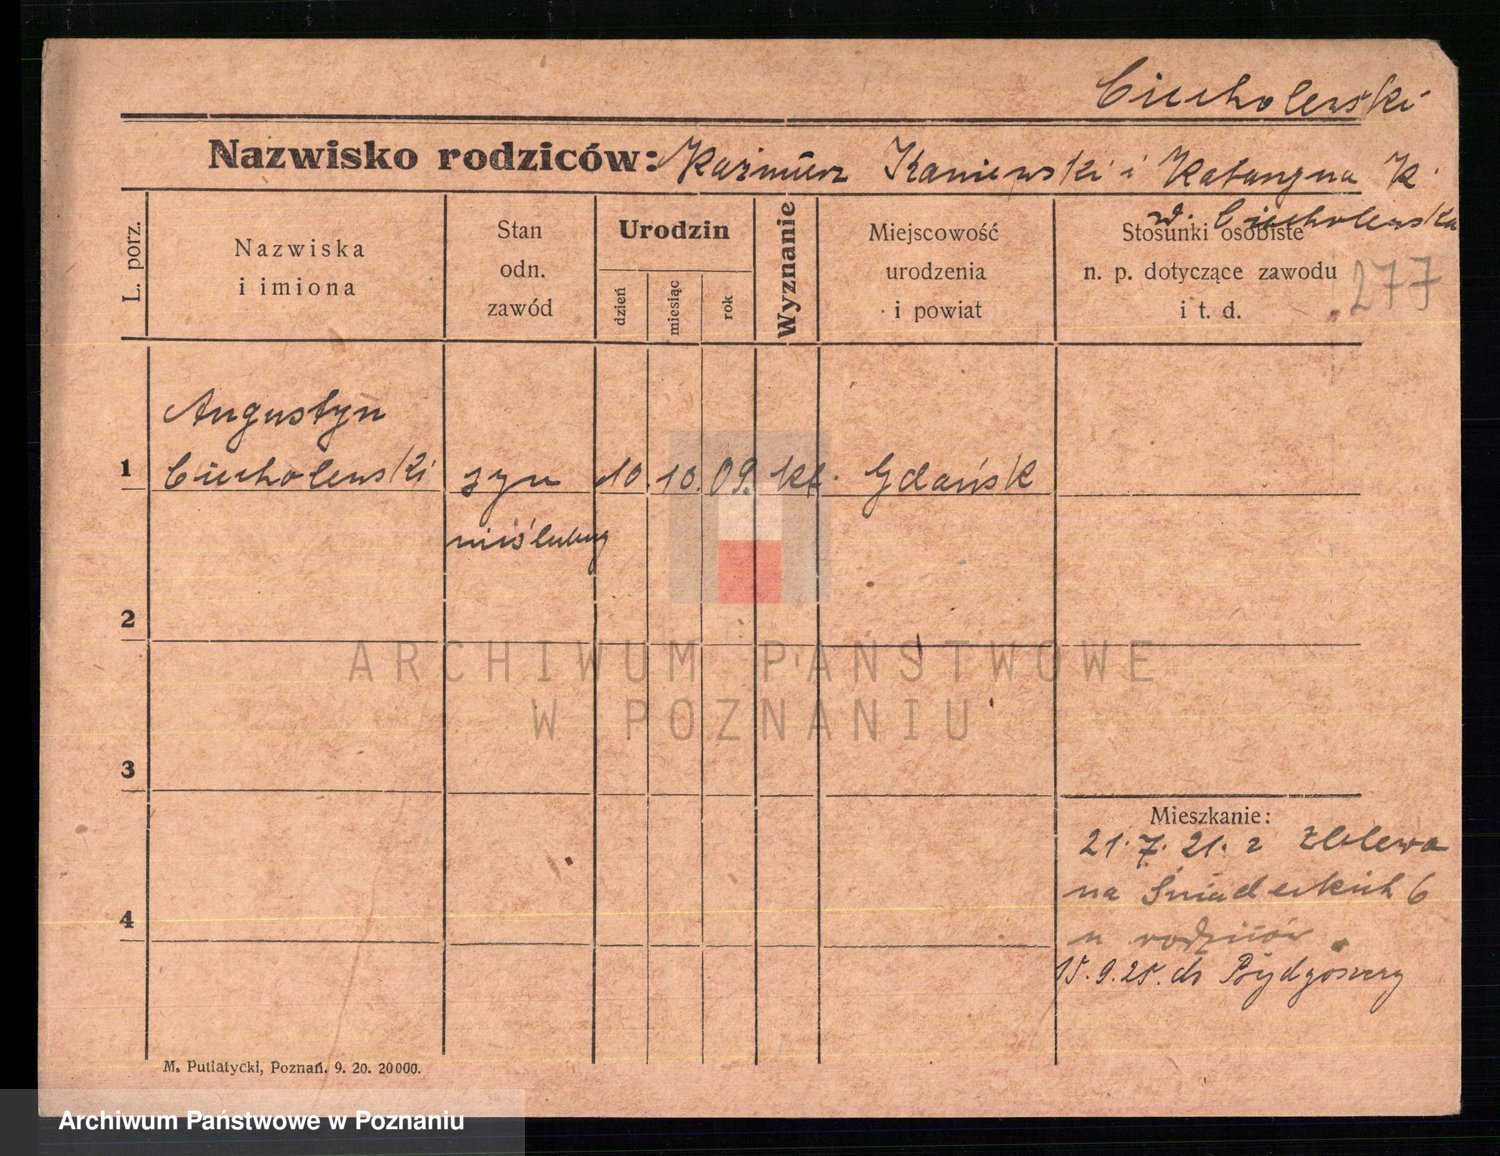 Ciecholewski
Nazwisko rodziców: Kaźmierz Kaniewski i Katarzyna K.
d. Ciecholewska
L. porz.
Nazwiska
i imiona
Stan
odn.
zawód
Urodzin
dzień
miesiąc
rok
Wyznanie
Miejscowość
urodzenia
i powiat
Stosunki osobiste
n. p. dotyczące zawodu
i t. d.
277
Augustyn
1 Ciecholewski syn 10. 10. 09. kt. Gdańsk
nieślubny
2
ARCHIWUM PAŃSTWOWE
W POZNANIU
3
Mieszkanie:
21.7.21. z Zblewa
na Śniadeckich 6
u rodziców
4
15.9.25. do Bydgoszczy
M. Putiatycki, Poznań. 9. 20. 20000.
Archiwum Państwowe w Poznaniu